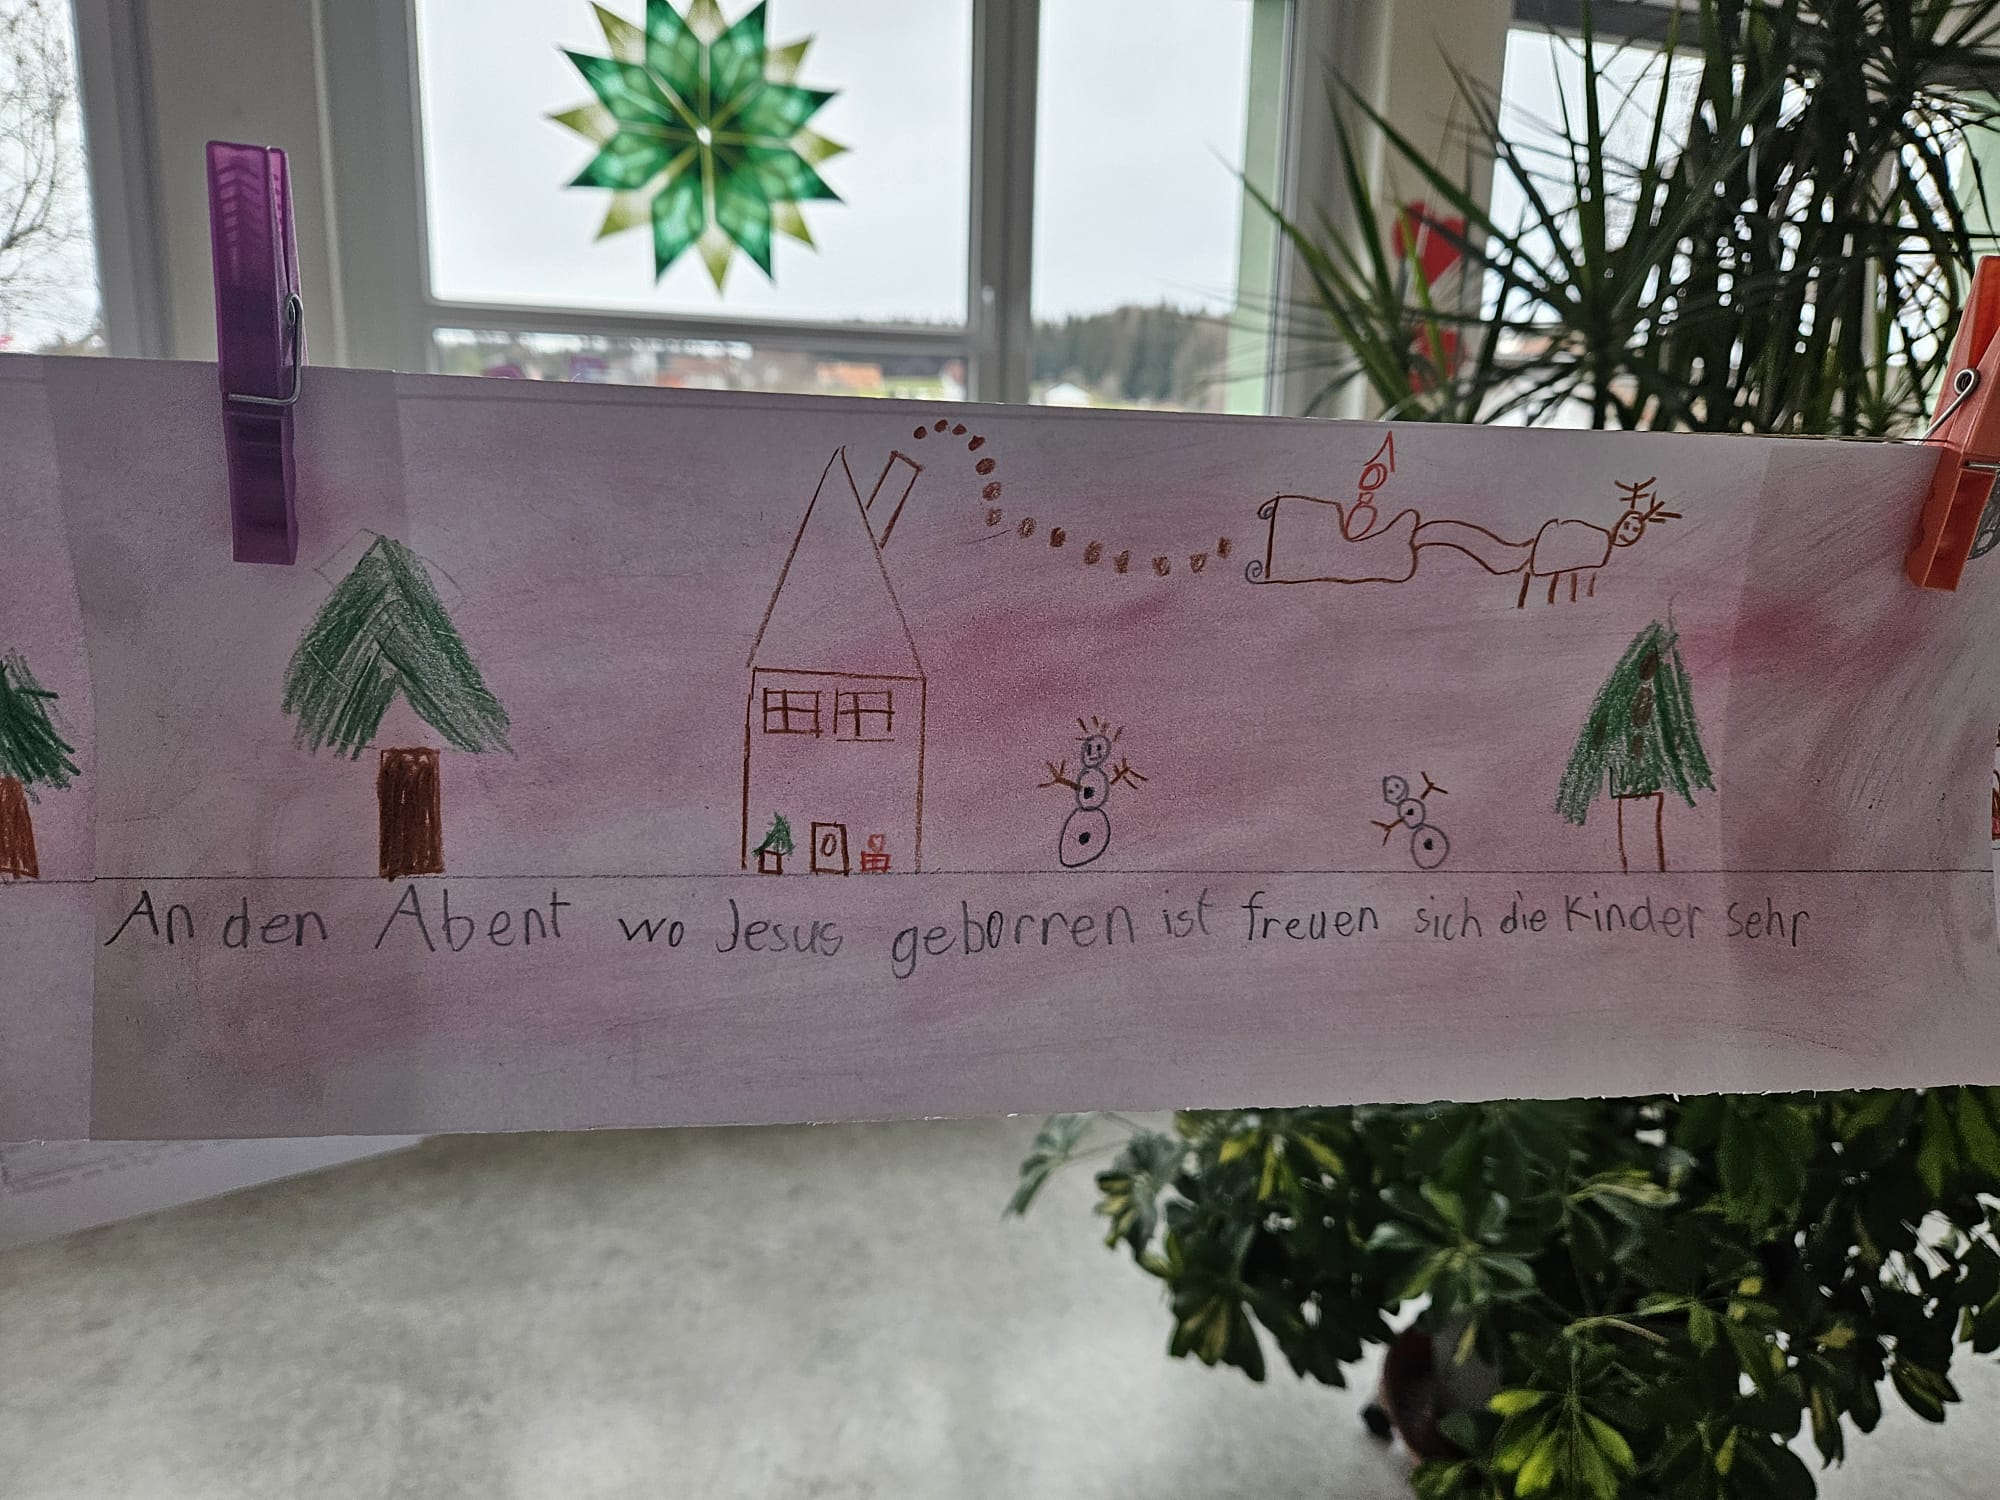 An den Abent wo Jesus geborren ist freuen sich die Kinder sehr